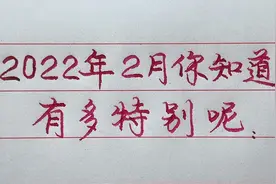 2022年2月你知道
有多特别呢